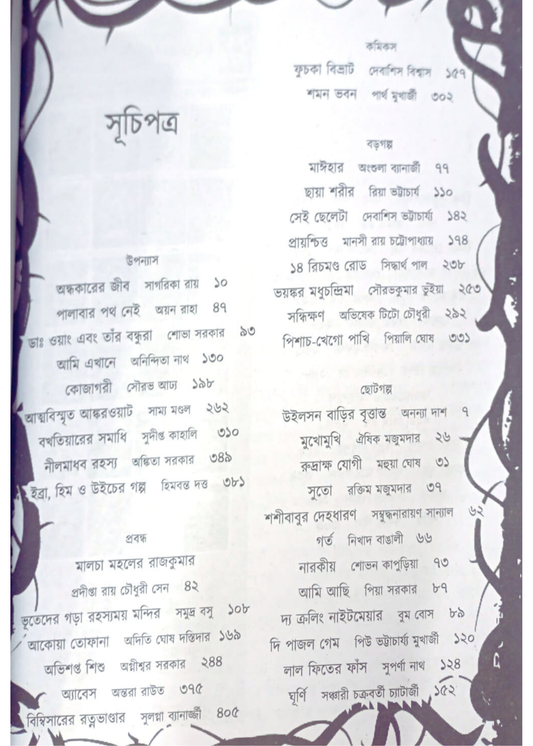 সূচিপত্র
উপন্যাস
অন্ধকারের জীব সাগরিকা রায় ১০
পালাবার পথ নেই অয়ন রাহা ৪৭
ডাঃ ওয়াং এবং তাঁর বন্ধুরা শোভা সরকার ৯৩
আমি এখানে অনিন্দিতা নাথ ১৩০
কোজাগরী সৌরভ আঢ্য ১৯৮
আত্মবিস্মৃত আঙ্করওয়াট সাম্য মণ্ডল ২৬২
বখতিয়ারের সমাধি সুদীপ্ত কাহালি ৩১০
নীলমাধব রহস্য অঙ্কিতা সরকার ৩৪৯
ইব্রা, হিম ও উইচের গল্প হিমবন্ত দত্ত ৩৮১
প্রবন্ধ
মালচা মহলের রাজকুমার
প্রদীপ্তা রায় চৌধুরী সেন ৪২
ভূতেদের গড়া রহস্যময় মন্দির সমুদ্র বসু ১০৮
আকোয়া তোফানা অদিতি ঘোষ দস্তিদার ১৬৯
অভিশপ্ত শিশু অগ্নীশ্বর সরকার ২৪৪
অ্যাবেস অন্তরা রাউত ৩৭৫
বিম্বিসারের রত্নভাণ্ডার সুলগ্না ব্যানার্জ্জী ৪০৫
কমিকস
ফুচকা বিভ্রাট দেবাশিস বিশ্বাস ১৫৭
শমন ভবন পার্থ মুখার্জী ৩০২
বড়গল্প
মাঈহার অংশুলা ব্যানার্জী ৭৭
ছায়া শরীর রিয়া ভট্টাচার্য ১১০
সেই ছেলেটা দেবাশিস ভট্টাচার্য্য ১৪২
প্রায়শ্চিত্ত মানসী রায় চট্টোপাধ্যায় ১৭৪
১৪ রিচমণ্ড রোড সিদ্ধার্থ পাল ২৩৮
ভয়ঙ্কর মধুচন্দ্রিমা সৌরভকুমার ভূঁইয়া ২৫৩
সন্ধিক্ষণ অভিষেক টিটো চৌধুরী ২৯২
পিশাচ-খেগো পাখি পিয়ালি ঘোষ ৩৩১
ছোটগল্প
উইলসন বাড়ির বৃত্তান্ত অনন্যা দাশ ৭
মুখোমুখি ঐষিক মজুমদার ২৬
রুদ্রাক্ষ যোগী মহুয়া ঘোষ ৩১
সুতো রক্তিম মজুমদার ৩৭
শশীবাবুর দেহধারণ সম্বুদ্ধনারায়ণ সান্যাল ৬২
গর্ত নিখাদ বাঙালী ৬৬
নারকীয় শোভন কাপুড়িয়া ৭৩
আমি আছি পিয়া সরকার ৮৭
দ্য ক্রলিং নাইটমেয়ার বুম বোস ৮৯
দি পাজল গেম পিউ ভট্টাচার্য্য মুখার্জী ১২০
লাল ফিতের ফাঁস সুপর্ণা নাথ ১২৪
ঘূর্ণি সঞ্চারী চক্রবর্তী চ্যাটার্জী ১৫২